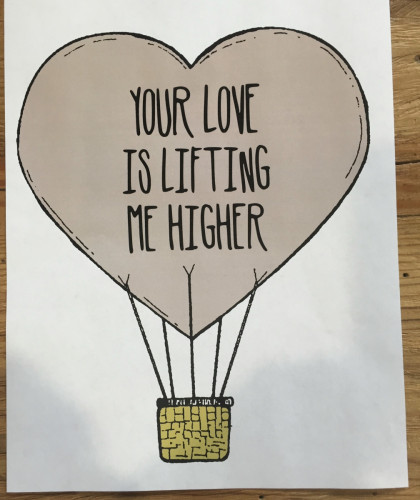 YOUR LOVE
IS LIFTING
ME HIGHER